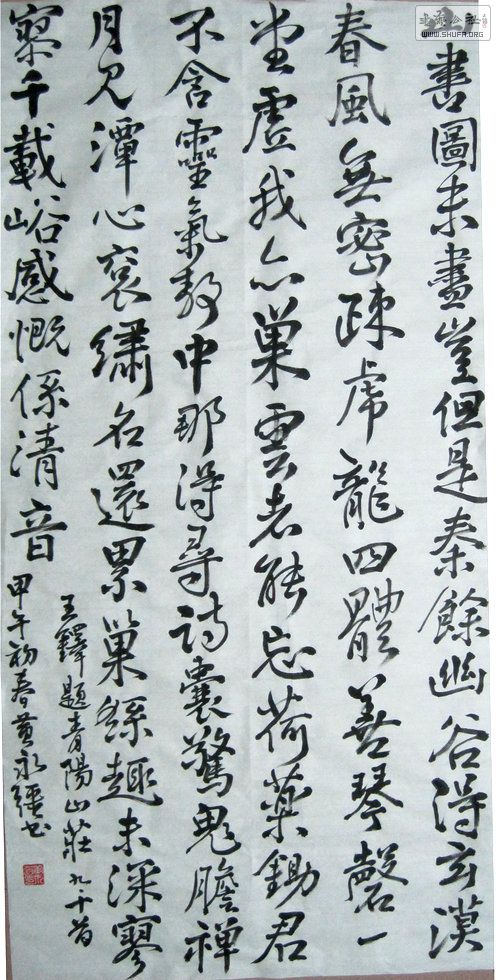 書圖未盡豈但是秦餘幽谷得玄漠
春風無密疎虎龍四體善琴磬一
堂虛我亦巢雲者能忘荷藥鋤君
不含靈氣敖中那得尋詩囊驚鬼膽禪
月見潭心袞繡名還累巢繇趣未深寥
寥千載峪感慨係清音
王鐸題青陽山莊九十首
甲午初春黃永書
书法公社
WWW.SHUFA.ORG